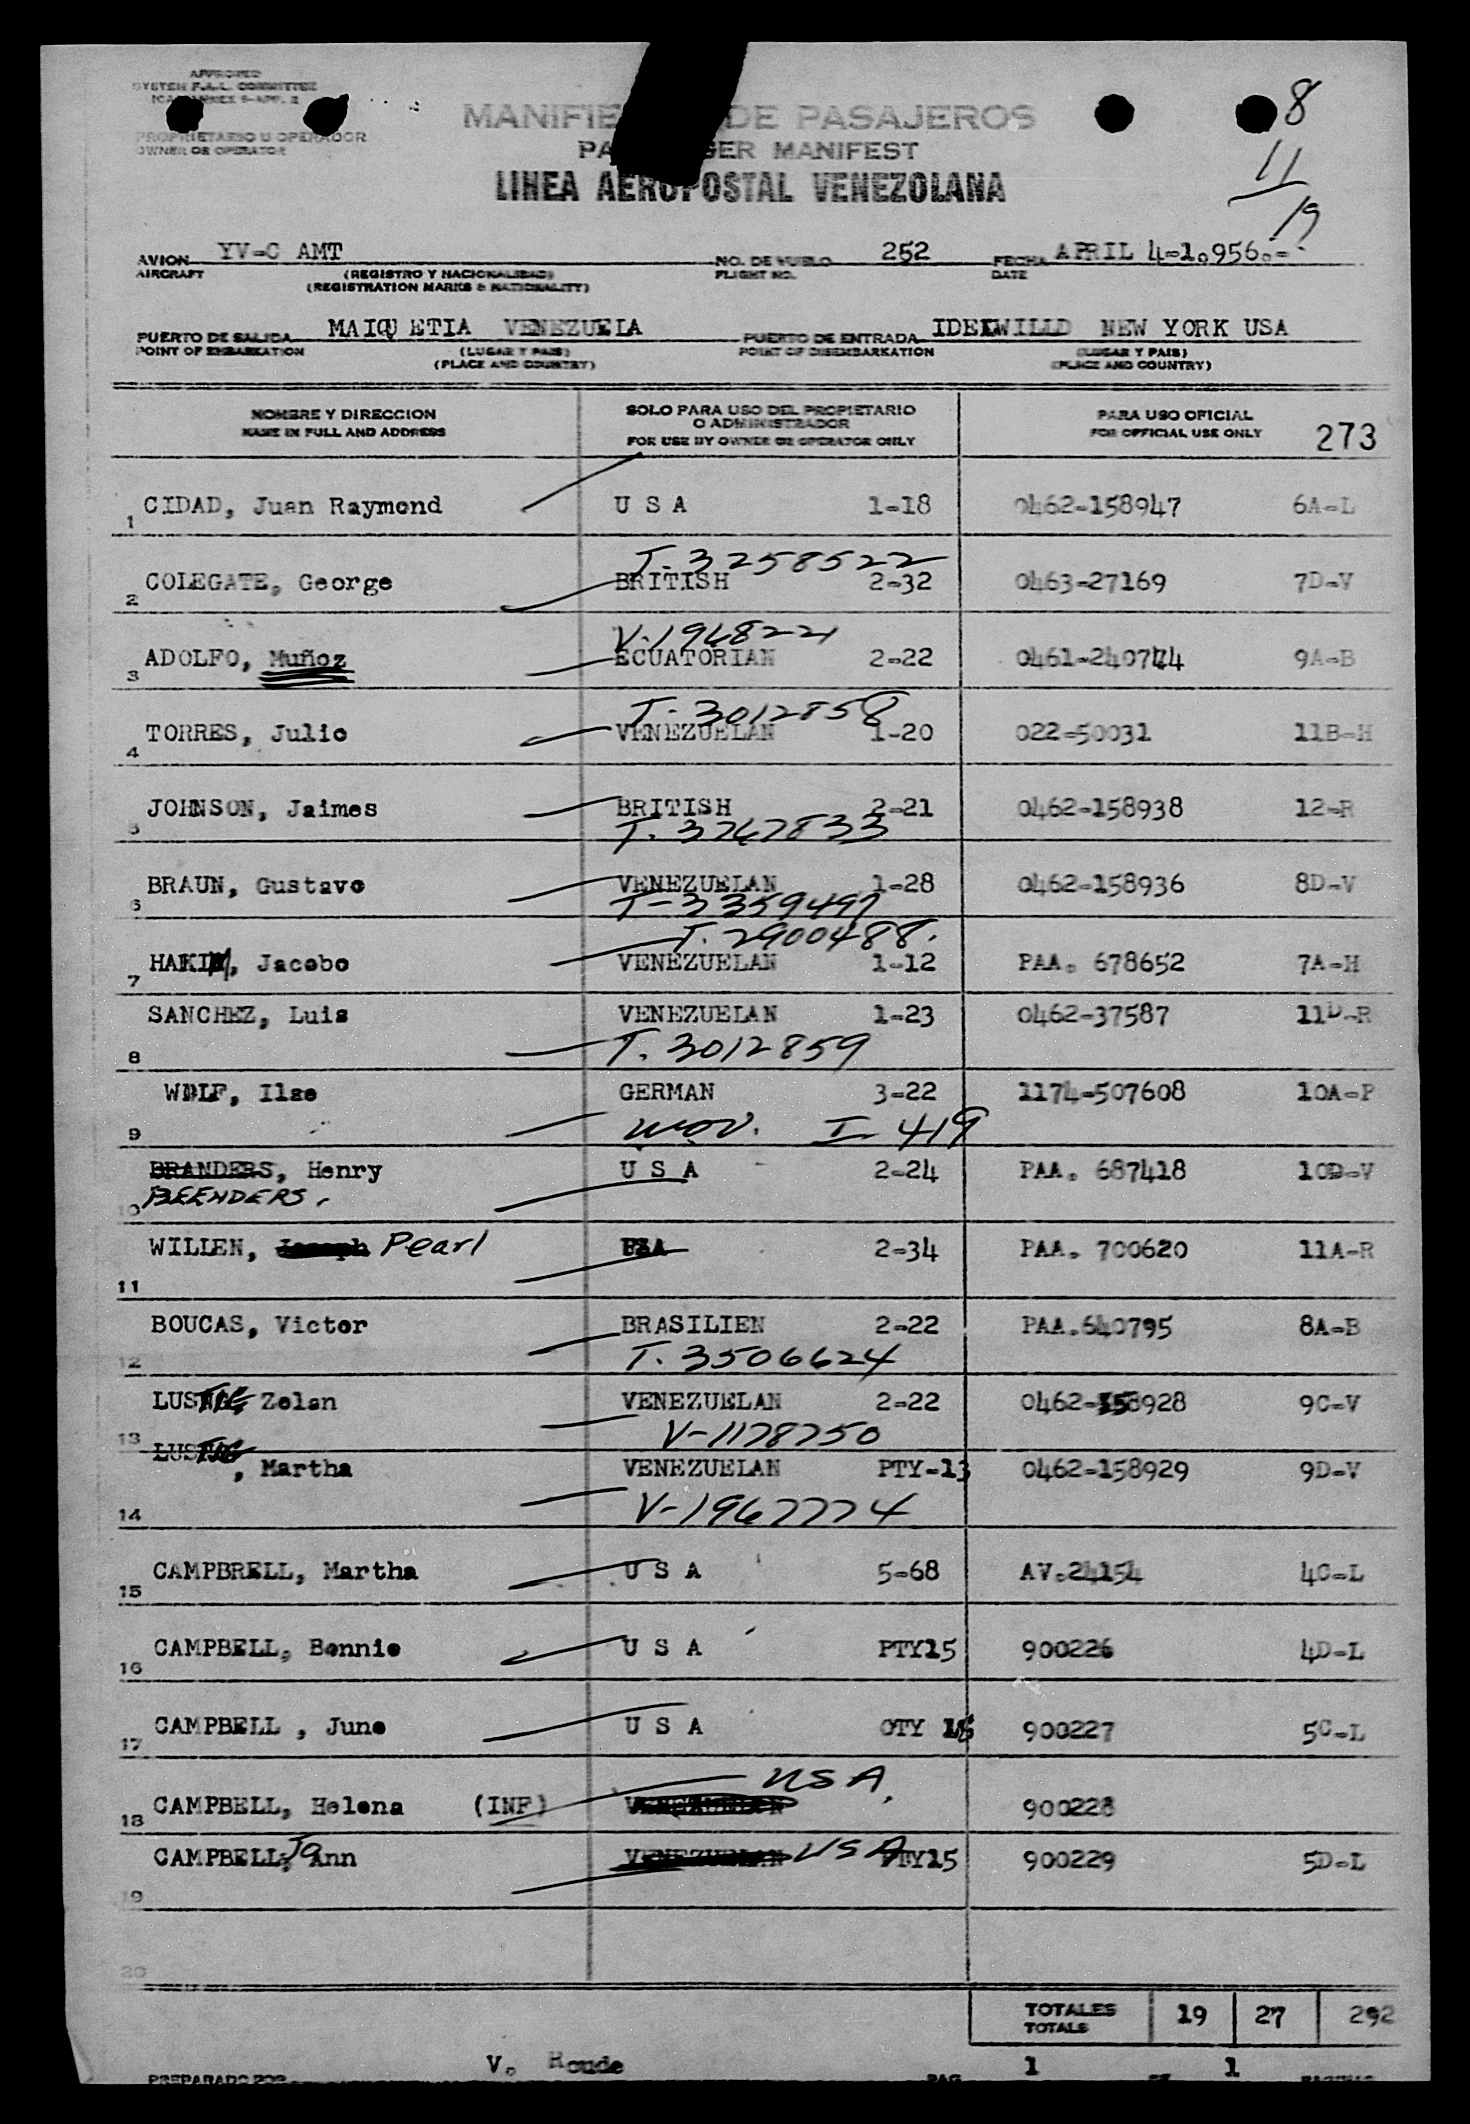 APPROVED
SYSTEM F.A.L. COMMITTEE
ICAO ANNEX 9-APP. 2
PROPRIETARIO U OPERADOR
OWNER OR OPERATOR
8
11
19
MANIFIE DE PASAJEROS
PA GER MANIFEST
LINEA AEROPOSTAL VENEZOLANA
AVION YV-C AMT NO. DE VUELO 252 FECHA APRIL 4-1.956.-
AIRCRAFT (REGISTRO Y NACIONALIDAD) FLIGHT NO. DATE
(REGISTRATION MARKS & NATIONALITY)
PUERTO DE SALIDA MAIQUETIA VENEZUELA PUERTO DE ENTRADA IDEIWILLD NEW YORK USA
POINT OF EMBARKATION (LUGAR Y PAIS) POINT OF DISEMBARKATION (LUGAR Y PAIS)
(PLACE AND COUNTRY) (PLACE AND COUNTRY)
NOMBRE Y DIRECCION SOLO PARA USO DEL PROPIETARIO PARA USO OFICIAL
O ADMINISTRADOR
NAME IN FULL AND ADDRESS FOR USE BY OWNER OR OPERATOR ONLY FOR OFFICIAL USE ONLY 273
1 CIDAD, Juan Raymond U S A 1-18 0462-158947 6A-L
T-3258522
2 COLEGATE, George BRITISH 2-32 0463-27169 7D-V
V-1968221
3 ADOLFO, Muñoz ECUATORIAN 2-22 0461-240774 9A-B
T-3012858
4 TORRES, Julio VENEZUELAN 1-20 022-50031 11B-H
5 JOHNSON, Jaimes BRITISH 2-21 0462-158938 12-R
T. 3267833
6 BRAUN, Gustavo VENEZUELAN 1-28 0462-158936 8D-V
T-3359497
T. 2900488.
7 HAKIM, Jacobo VENEZUELAN 1-12 PAA. 678652 7A-H
8 SANCHEZ, Luis VENEZUELAN 1-23 0462-37587 11D-R
T. 3012859
9 WOLF, Ilse GERMAN 3-22 1174-507608 10A-P
WOV. I-419
10 BRANDERS, Henry U S A 2-24 PAA. 687418 10D-V
BEENDERS.
11 WILLEN, Joseph Pearl USA 2-34 PAA. 700620 11A-R
12 BOUCAS, Victor BRASILIEN 2-22 PAA.640795 8A-B
T. 3506624
13 LUSTIG, Zolan VENEZUELAN 2-22 0462-158928 9C-V
V-1178750
14 LUSTIG, Martha VENEZUELAN PTY-13 0462-158929 9D-V
V-1967774
15 CAMPBRELL, Martha U S A 5-68 AV.24154 4C-L
16 CAMPBELL, Bennie U S A PTY15 900226 4D-L
17 CAMPBELL , June U S A OTY 15 900227 5C-L
USA,
18 CAMPBELL, Helena (INF) VENEZUELAN 900228
19 CAMPBELL, Jo Ann VENEZUELAN USA PTY15 900229 5D-L
20
TOTALES 19 27 292
TOTALS
V. Roude 1 1
PREPARADO POR PAG.